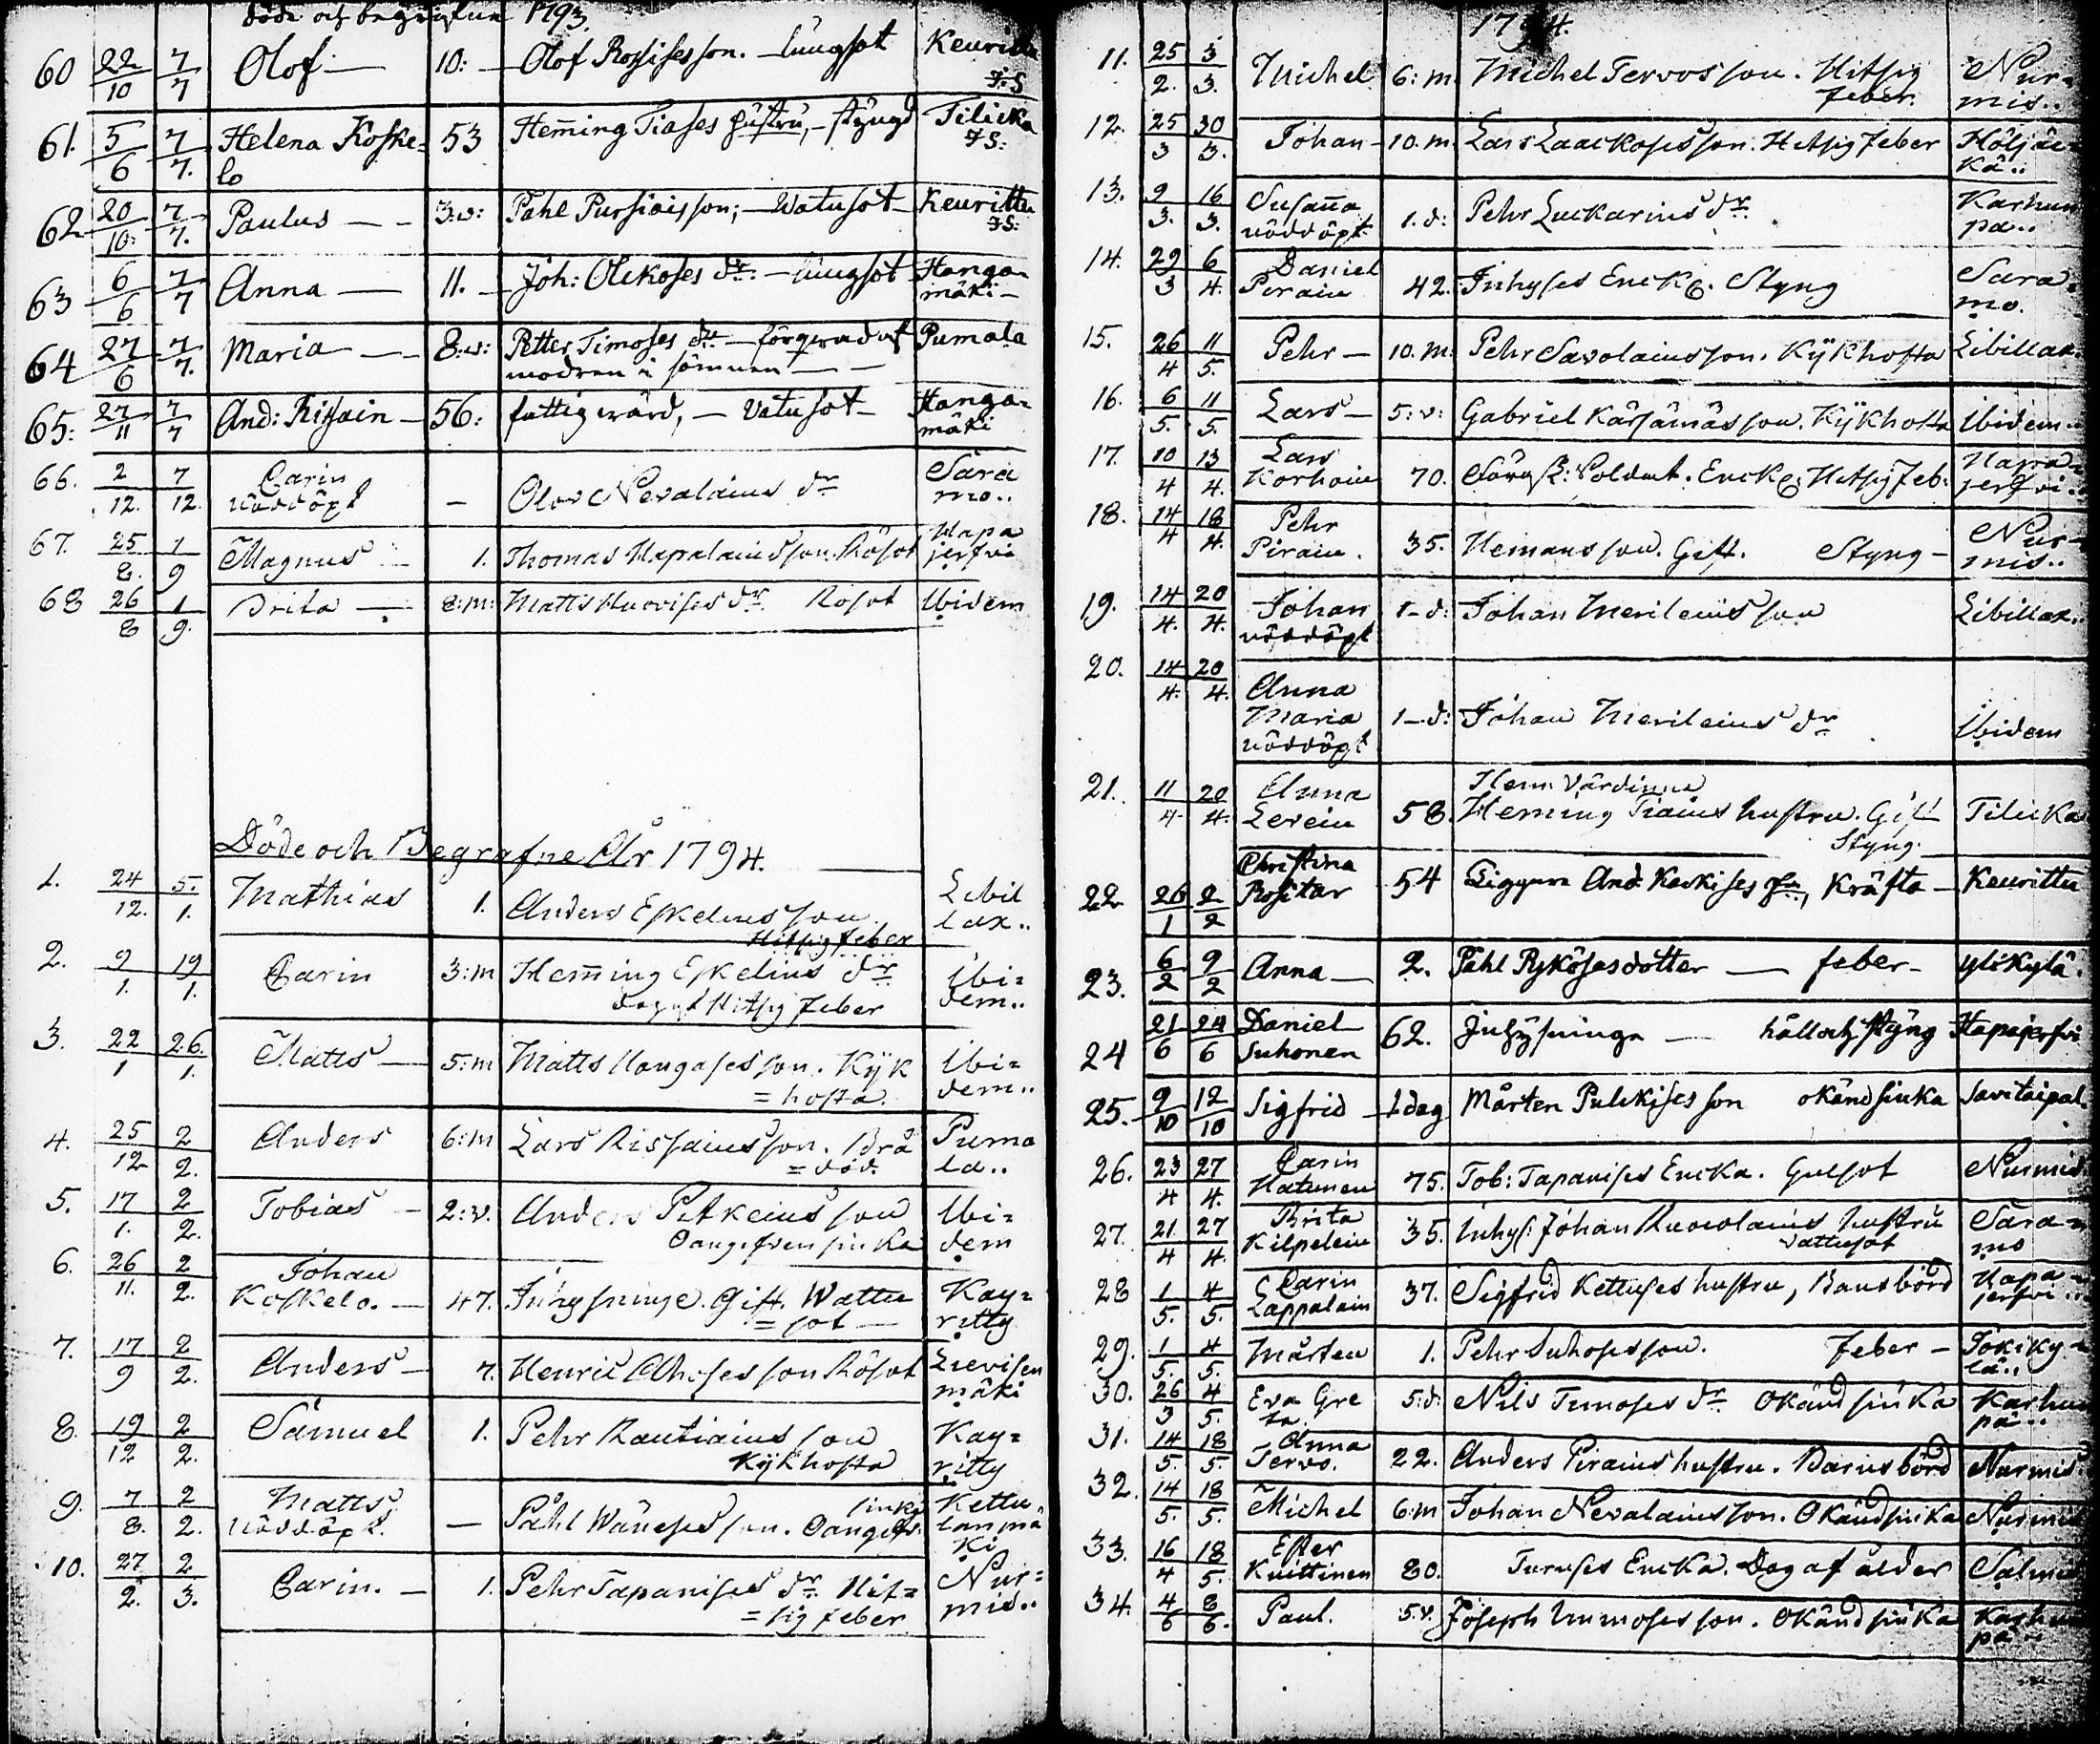 Döde och begrafne 1793.
60 22/10 7/7 Olof — 10: — Olof Rossises son. — lungsot Keuritta
61. 5/6 7/7. Helena Koske= 53 Heming Tiases hustru, — styngd Tilicka
lo
62 20/10: 7/7. Paulus — — 3:v: Påhl Pursiais son; — Watusot — Keurittu
63 6/6 7/7 Anna — 11. — Joh: Olckoses dr: — lungsot Hanga=
mäki —
64 27/6 7/7. Maria — — 8:v: Petter Timoses dr — förqwad af Pumala
modren i sömnen — —
65: 27/11 7/7 And: Rissain — 56: fattig wård, — Vatusot — Hanga=
mäki
66. 2/12. 7/12. Carin — Olov Nevalains dr Sara
nöddöpt mo..
67. 25/8. 1/9 Magnus — 1. Thomas Hapalains son. Rösot Hapa
jerfvi
68 26/8 1/9. Brita — 8:m: Matts Huovises dr. Rosot Ibidem
Döde och Begrafne År 1794.
1. 24/12. 5./1. Mathias 1. Anders Eskelins son Libil
Hitsig feber lax..
2. 9/1. 19/1. Carin 3:m Heming Eskelins dr Ibi=
Hitsig feber dem..
3. 22/1 26./1. Matts — 5:m Matts Hangases son. Kyk Ibi=
= hosta. dem..
4. 25/12 2/2. Anders 6:m Lars Rissains son. Brå Puma
= död. la..
5. 17/1. 2/2. Tobias — 2:v. Anders Pitkeins son Ibi=
Oangifven siuka dem
6. 26/11. 2/2. Johan
Koskelo. — 47. Inhysinge. Gift. Wattu Kay=
= sot — ritty
7. 17/9 2/2. Anders — 7. Henric Ahoses son Rösot Lievisen
mäki
8. 19/12 2/2. Samuel 1. Pehr Rautiains son Kay=
Kykhosta ritty
9. 7/8. 2/2. Matts siuka Kettu
nöddöpt. — Påhl Wäneses son. Oangifv. lanmä
ki
10. 27/2. 2/3. Carin. — 1. Pehr Tapanises dr. Hit= Nur=
= sig feber mis..
1794.
11. 25/2. 3/3. Michel 6:m. Michel Tervos son. Hitsig Nur=
feber. mis..
12. 25/3 30/3. Johan — 10.m. Lars Laackoses son. Hitsig feber Höljäc=
kä..
13. 9/3. 16/3. Susanna Karhun
nöddöpt 1.d: Pehr Luckarins dr. pä..
14. 29/3 6/4. Daniel Sara=
Pirain 42. Inhyses Enckg. Styng mo.
15. 26/4 11/5. Pehr — 10.m. Pehr Savolains son. Kykhosta Libillax.
16. 6/5. 11/5. Lars — 5:v: Gabriel Kärsämäs son. Kykhosta Ibidem..
17. 10/4 13/4. Lars Hapa=
Korhoin 70. Soldat. Enckg. Hitsig feb: jerfvi..
18. 14/4 18/4. Pehr Nur=
Pirain. 35. Hemans son. Gift. Styng — mis..
19. 14/4. 20/4. Johan 1—d: Johan Merileins son Libillax.
nöddöpt
20. 14/4. 20/4. Anna
Maria 1—d: Johan Merileins dr Ibidem
nöddöpt
21. 11/4 20/4. Anna Hem Värdinna
Levein 58. Heming Tiains hustru. Gift Tilicka
Styng.
22 26/1 2/2 Christina
Rositar 54 And: Kackises, Kräfta — Keurittu
23. 6/2 9/2 Anna — 2. Påhl Ryköses dotter — feber — ylikylä.
24 21/6 24/6 Daniel
Suhonen 62. Inhysinge — håll och styng Hapajerfvi
25. 9/10 12/10 Sigfrid — 1 dag Mårten Pulckises son okänd siuka Savitaipal.
26. 23/4 27/4. Carin
Hatunen 75. Tob: Tapanises Encka. Gulsot Nurmis
27. 21/4 27/4. Brita
Kilpelein 35. Inhys: Johan Ruocolains hustru Sara=
Vattusot mo
28 1/5. 4/5. Carin Hapa=
Lappalain 37. Sigfrid Kettuses hustru, Barnsbörd jerfvi..
29. 1/5. 4/5. Mårten 1. Pehr Suhoses son. feber — Jokiky=
lä..
30. 26/3 4/5. Eva Gre 5:d: Nils Timoses dr Okänd siuka Karhun
ta. pä..
31. 14/5. 18/5. Anna
Tervo. 22. Anders Pirains hustru. Barnsbörd Nurmis
32. 14/5. 18/5. Michel 6:m Johan Nevalains son. Okänd siuka Nurmis
33. 16/4 18/5. Ester
Knittinen 80. Turuses Encka. Dog af ålder Salmis
34. 4/6 8/6. Paul. 5.v. Joseph Immoses son. Okänd siuka Karhun
pä..